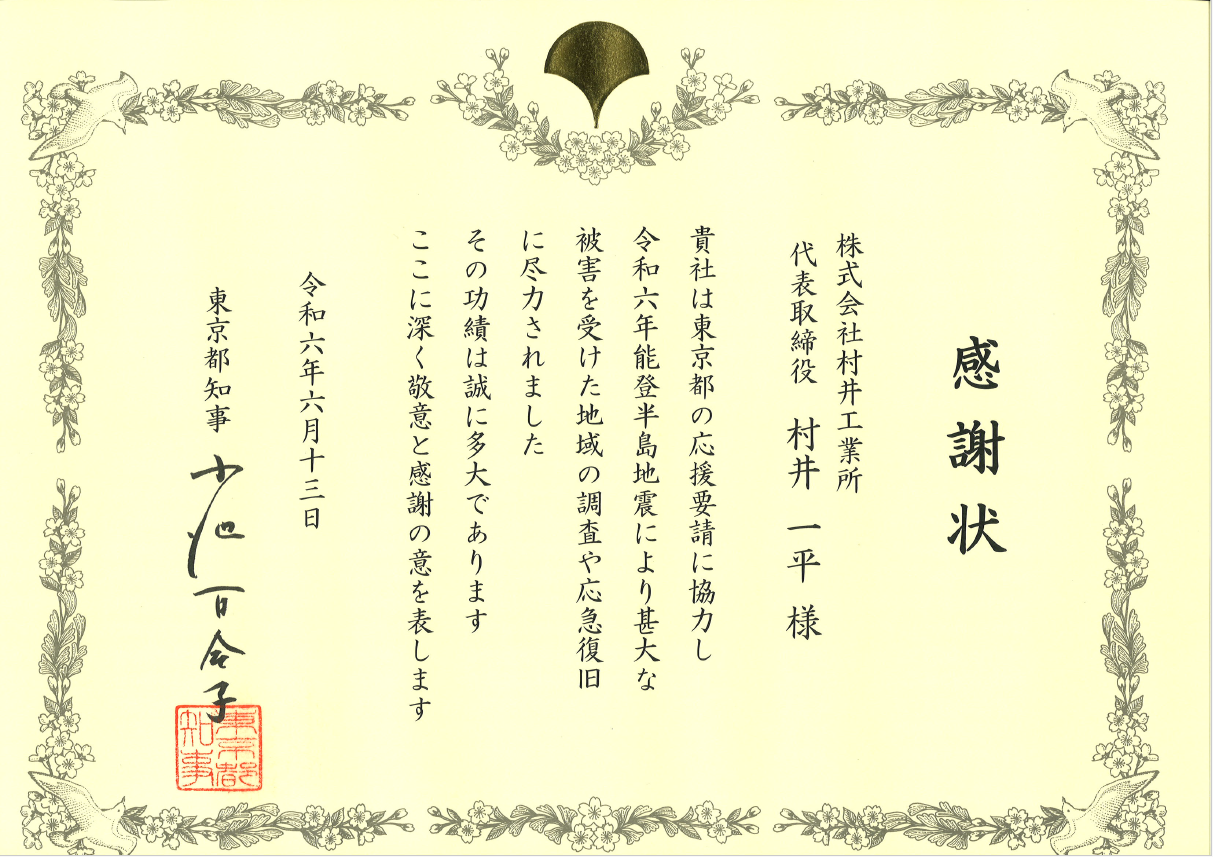 感謝状
株式会社村井工業所
代表取締役 村井 一平 様
貴社は東京都の応援要請に協力し
令和六年能登半島地震により甚大な
被害を受けた地域の調査や応急復旧
に尽力されました
その功績は誠に多大であります
ここに深く敬意と感謝の意を表します
令和六年六月十三日
東京都知事 小池百合子
東京都
知事